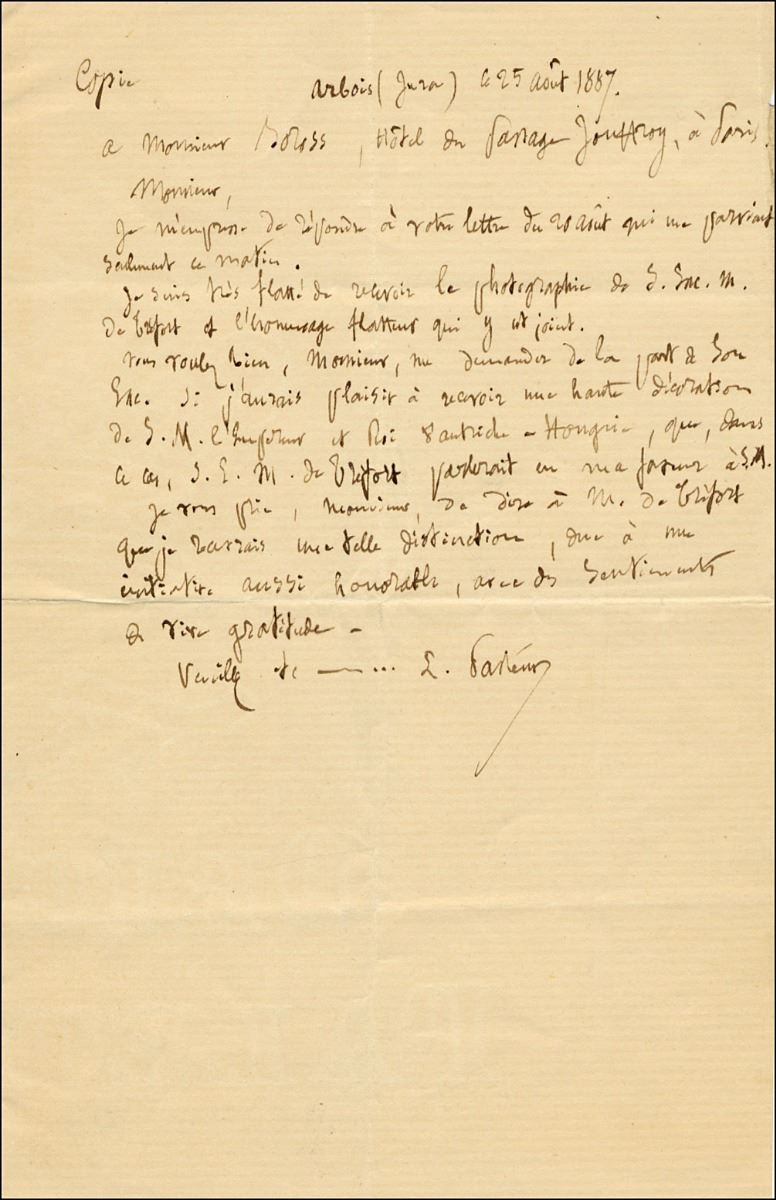 Copie
Arbois (Jura) le 25 août 1887.
a Monsieur , Hôtel du Passage Jouffroy, à Paris.
Monsieur,
Je m'empresse de répondre à votre lettre du 20 août qui me parvient
seulement ce matin.
Je suis très flatté de recevoir la photographie de S. Exc. M.
de Tréfort et l'hommage flatteur qui y est joint.
Vous voulez bien, Monsieur, me demander de la part de Son
Exc. si j'aurais plaisir à recevoir une haute décoration
de S. M. l'Empereur et Roi d'autriche-Hongrie, que, dans
ce cas, S. E. M. de Tréfort parlerait en ma faveur à S.M.
Je vous prie, Monsieur, de dire à M. de Tréfort
que je recevrais une telle distinction, due à une
initiative aussi honorable, avec des sentiments
de vive gratitude -
Veuillez etc ——... L. Pasteur